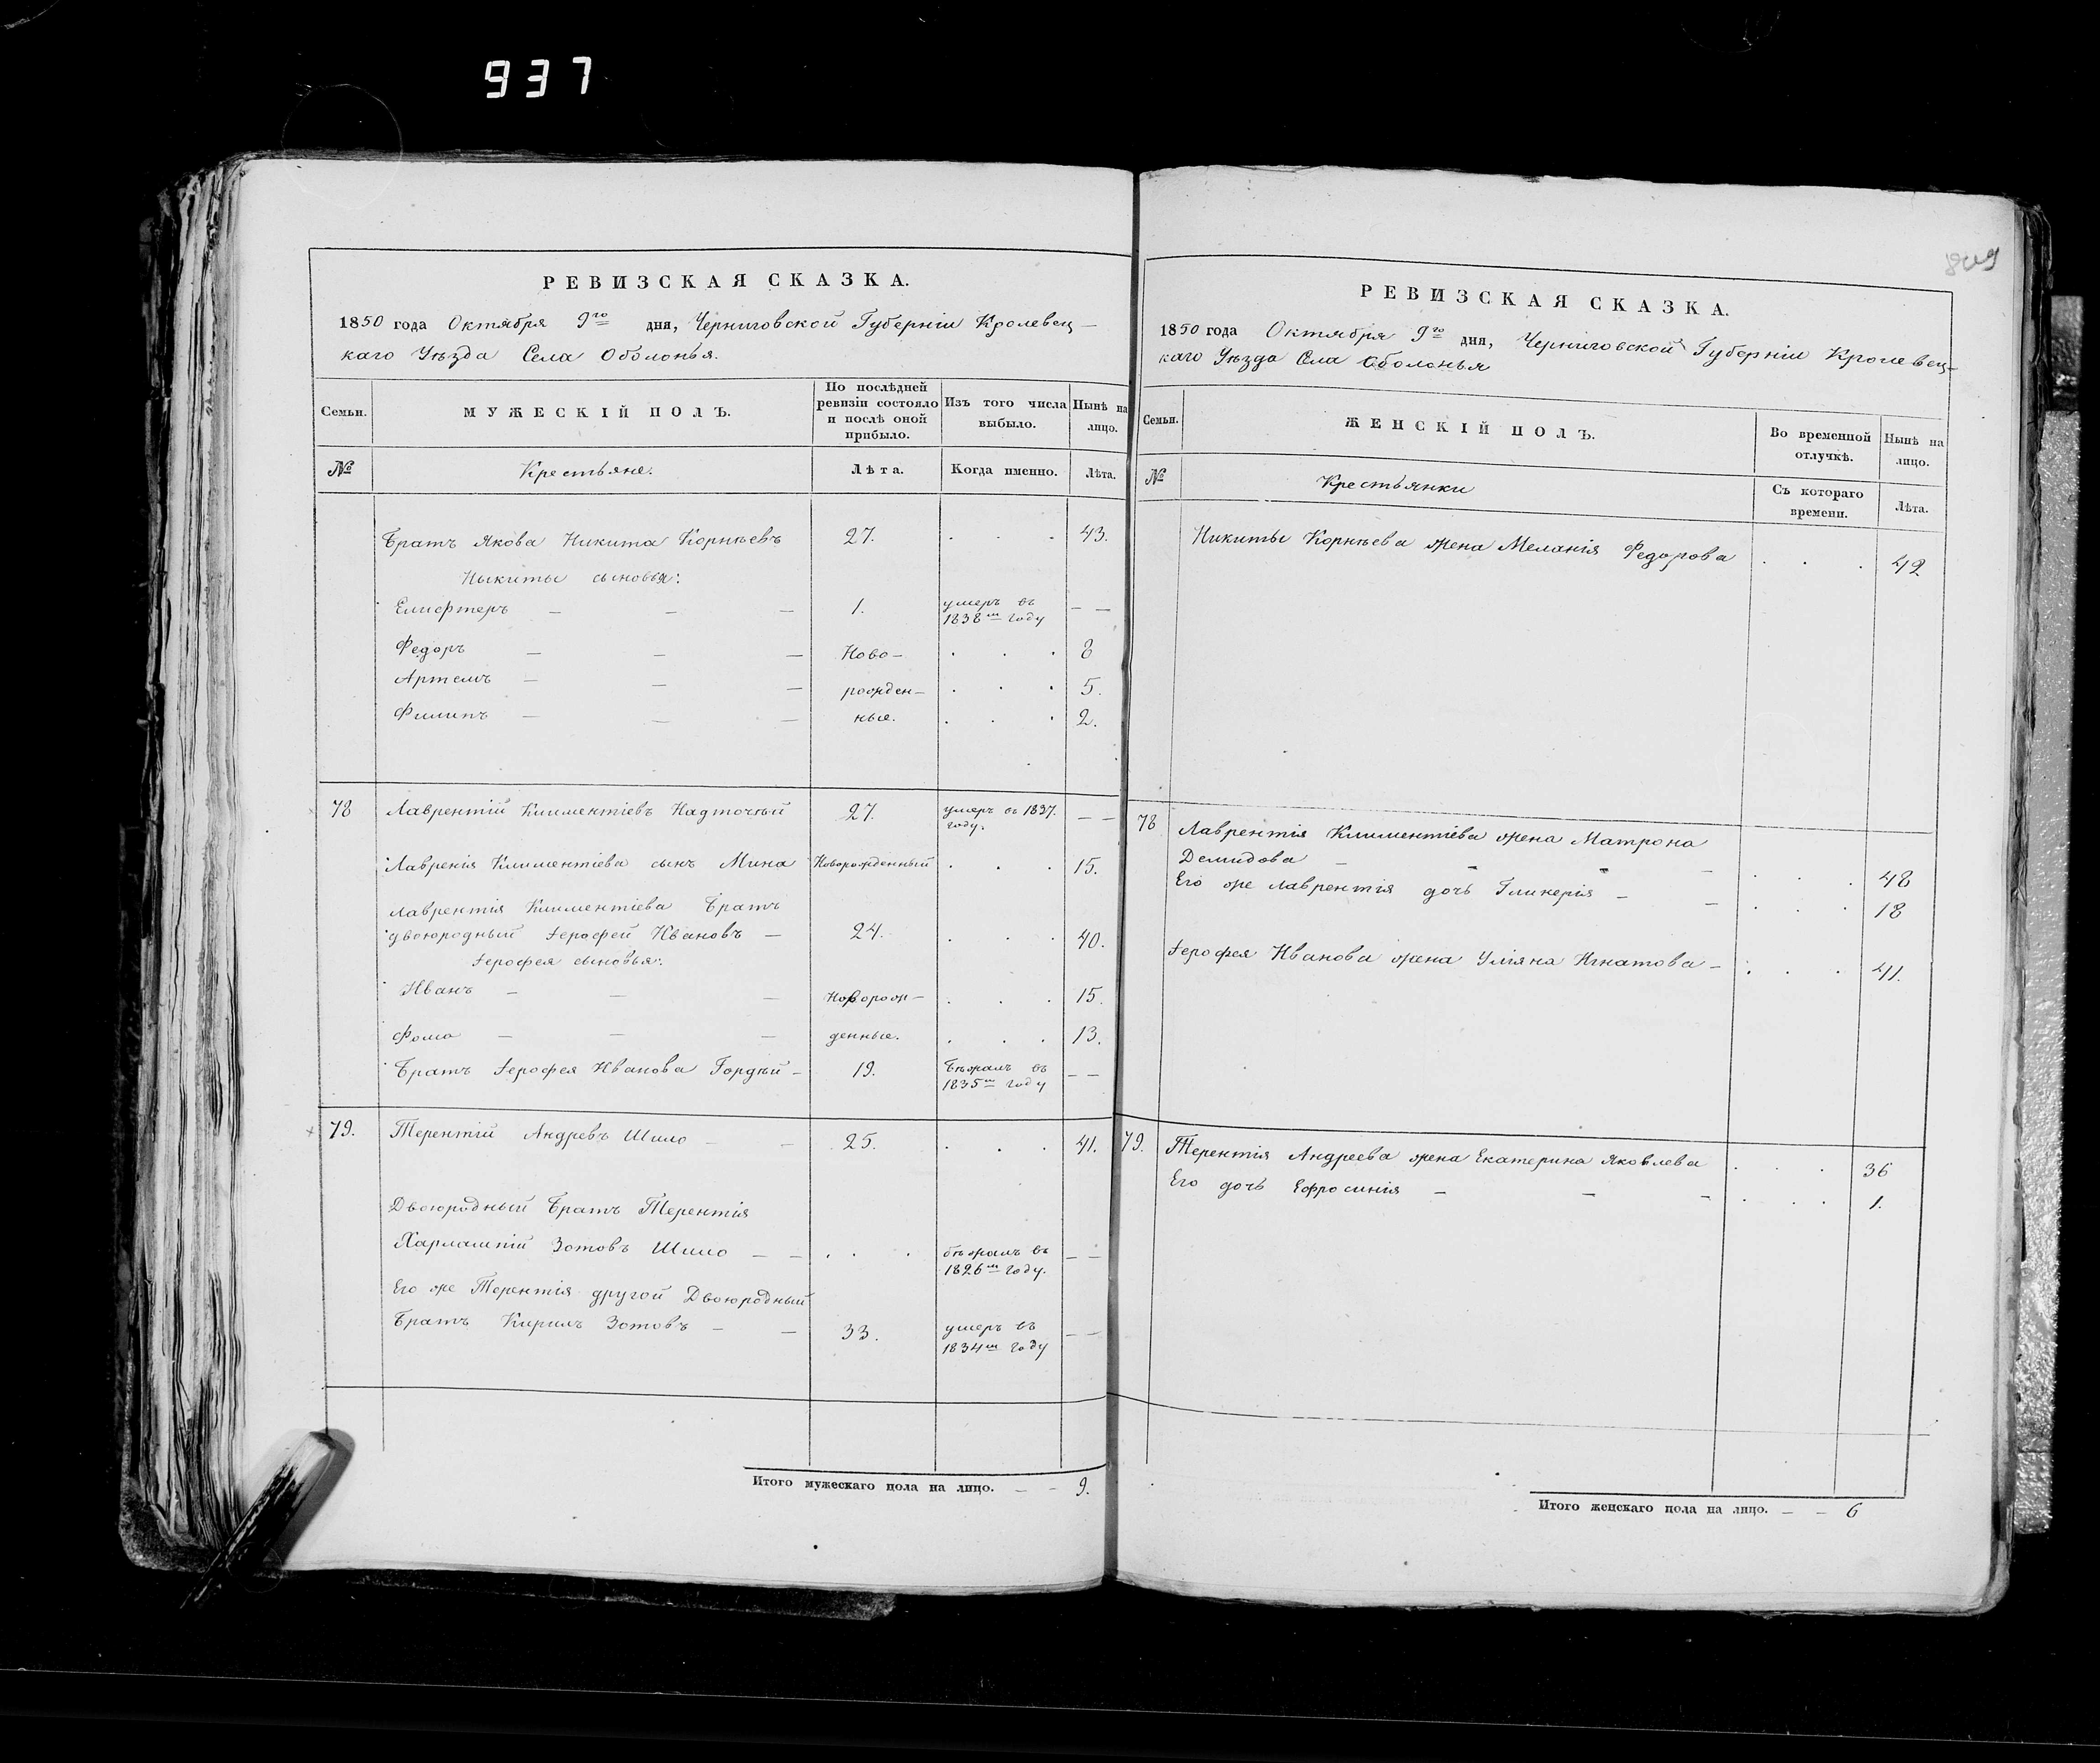 937
809
РЕВИЗСКАЯ СКАЗКА.
1850 года Октября 9го дня, Черниговской Губерніи Кролевец–
каго Уѣзда Села Оболонья.
Семьи.
МУЖЕСКІЙ ПОЛЪ.
По послѣдней ревизіи состояло и послѣ оной прибыло.
Изъ того числа выбыло.
Нынѣ на лицо.
№
Крестьяне.
Лѣта.
Когда именно.
Лѣта.
Братъ Якова Никита Корнѣевъ 27. 43.
Никиты сыновья:
Елифтеръ — — — 1. умеръ въ 1838м году — —
Федоръ — — — Ново– 8
Артемъ — — — рожден– 5.
Филипъ — — — ные. 2.
78 Лаврентій Климентіевъ Надточѣй 27. умеръ въ 1837. году. — —
Лавренія Климентіева сынъ Мина Новорожденный 15.
Лаврентія Климентіева Братъ
двоюродный Іерофей Ивановъ — 24. 40.
Іерофея сыновья:
Иванъ — — — Новорож– 15.
Фома — — — денные. 13.
Братъ Іерофея Иванова Гордѣй – 19. Бѣжалъ въ 1835м году — —
79. Терентій Андревъ Шило — — 25. 41.
Двоюродный Братъ Терентія
Харлампій Зотовъ Шило — — бѣжалъ въ 1826м году. — —
Его же Терентія другой Двоюродный
Братъ Кирилъ Зотовъ — — 33. умеръ въ 1834м году — —
Итого мужескаго пола на лицо. — – 9.
РЕВИЗСКАЯ СКАЗКА.
1850 года Октября 9го дня, Черниговской Губерніи Кролевец–
каго Уѣзда Села Оболонья
Семьи.
ЖЕНСКІЙ ПОЛЪ.
Во временной отлучкѣ.
Нынѣ на лицо.
№
Крестьянки
Съ котораго времени.
Лѣта.
Никиты Корнѣева жена Меланія Федорова 42
78 Лаврентія Климентіева жена Матрона
Демидова — — — 48
Его же Лаврентія дочь Гликерія — — 18
Іерофея Иванова жена Уліяна Игнатова — 41.
79. Терентія Андреева жена Екатерина Яковлева 36
Его дочь Ефросинія — — — 1.
Итого женскаго пола на лицо. — — 6